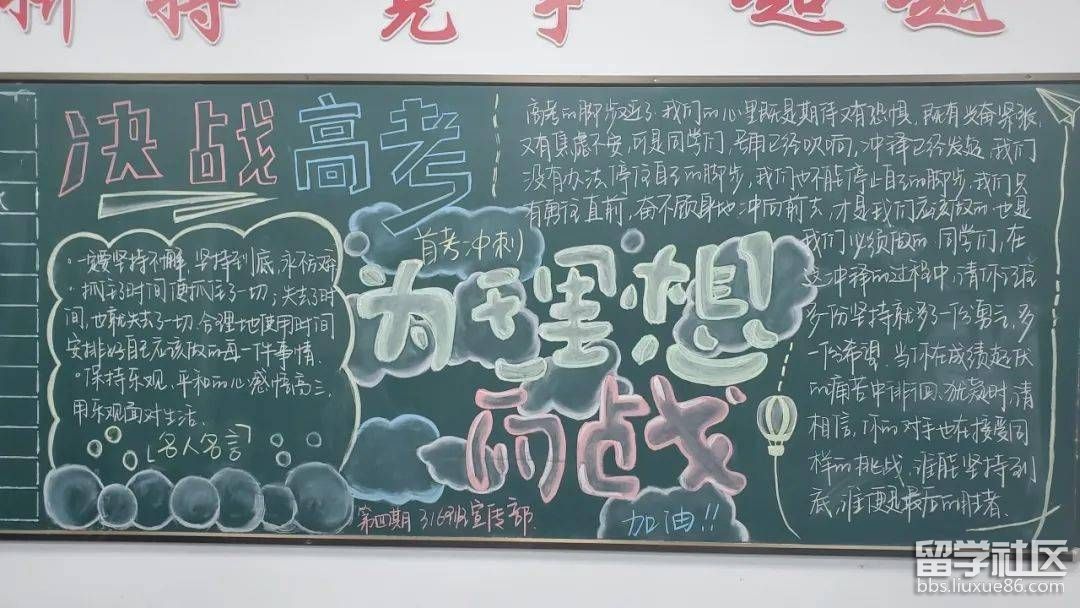 拼搏 竞争 超越
决战高考
首考冲刺
为理想
而战
·一定要坚持不懈,坚持到底,永不放弃
·抓住了时间便抓住了一切;失去了时
间,也就失去了一切.合理地使用时间
安排好自己应该做的每一件事情.
·保持乐观、平和的心感悟高三,
用乐观面对生活.
「名人名言」
第四期 316班宣传部
加油!!
高考的脚步近了,我们的心里既是期待又有恐惧,既有兴奋紧张,
又有焦虑不安,可是同学们,号角已经吹响,冲锋已经发起,我们
没有办法停住自己的脚步,我们也不能停止自己的脚步,我们只
有勇往直前,奋不顾身地冲向前去,才是我们应该做的,也是
我们必须做的.同学们,在
这冲锋的过程中,请你记住
多一份坚持就多了一份勇气,多
一份希望.当你在成绩起伏
的痛苦中徘徊、犹疑时,请
相信,你的对手也在接受同
样的挑战,谁能坚持到
底,谁便是最后的胜者.
留学社区
bbs.liuxue86.com